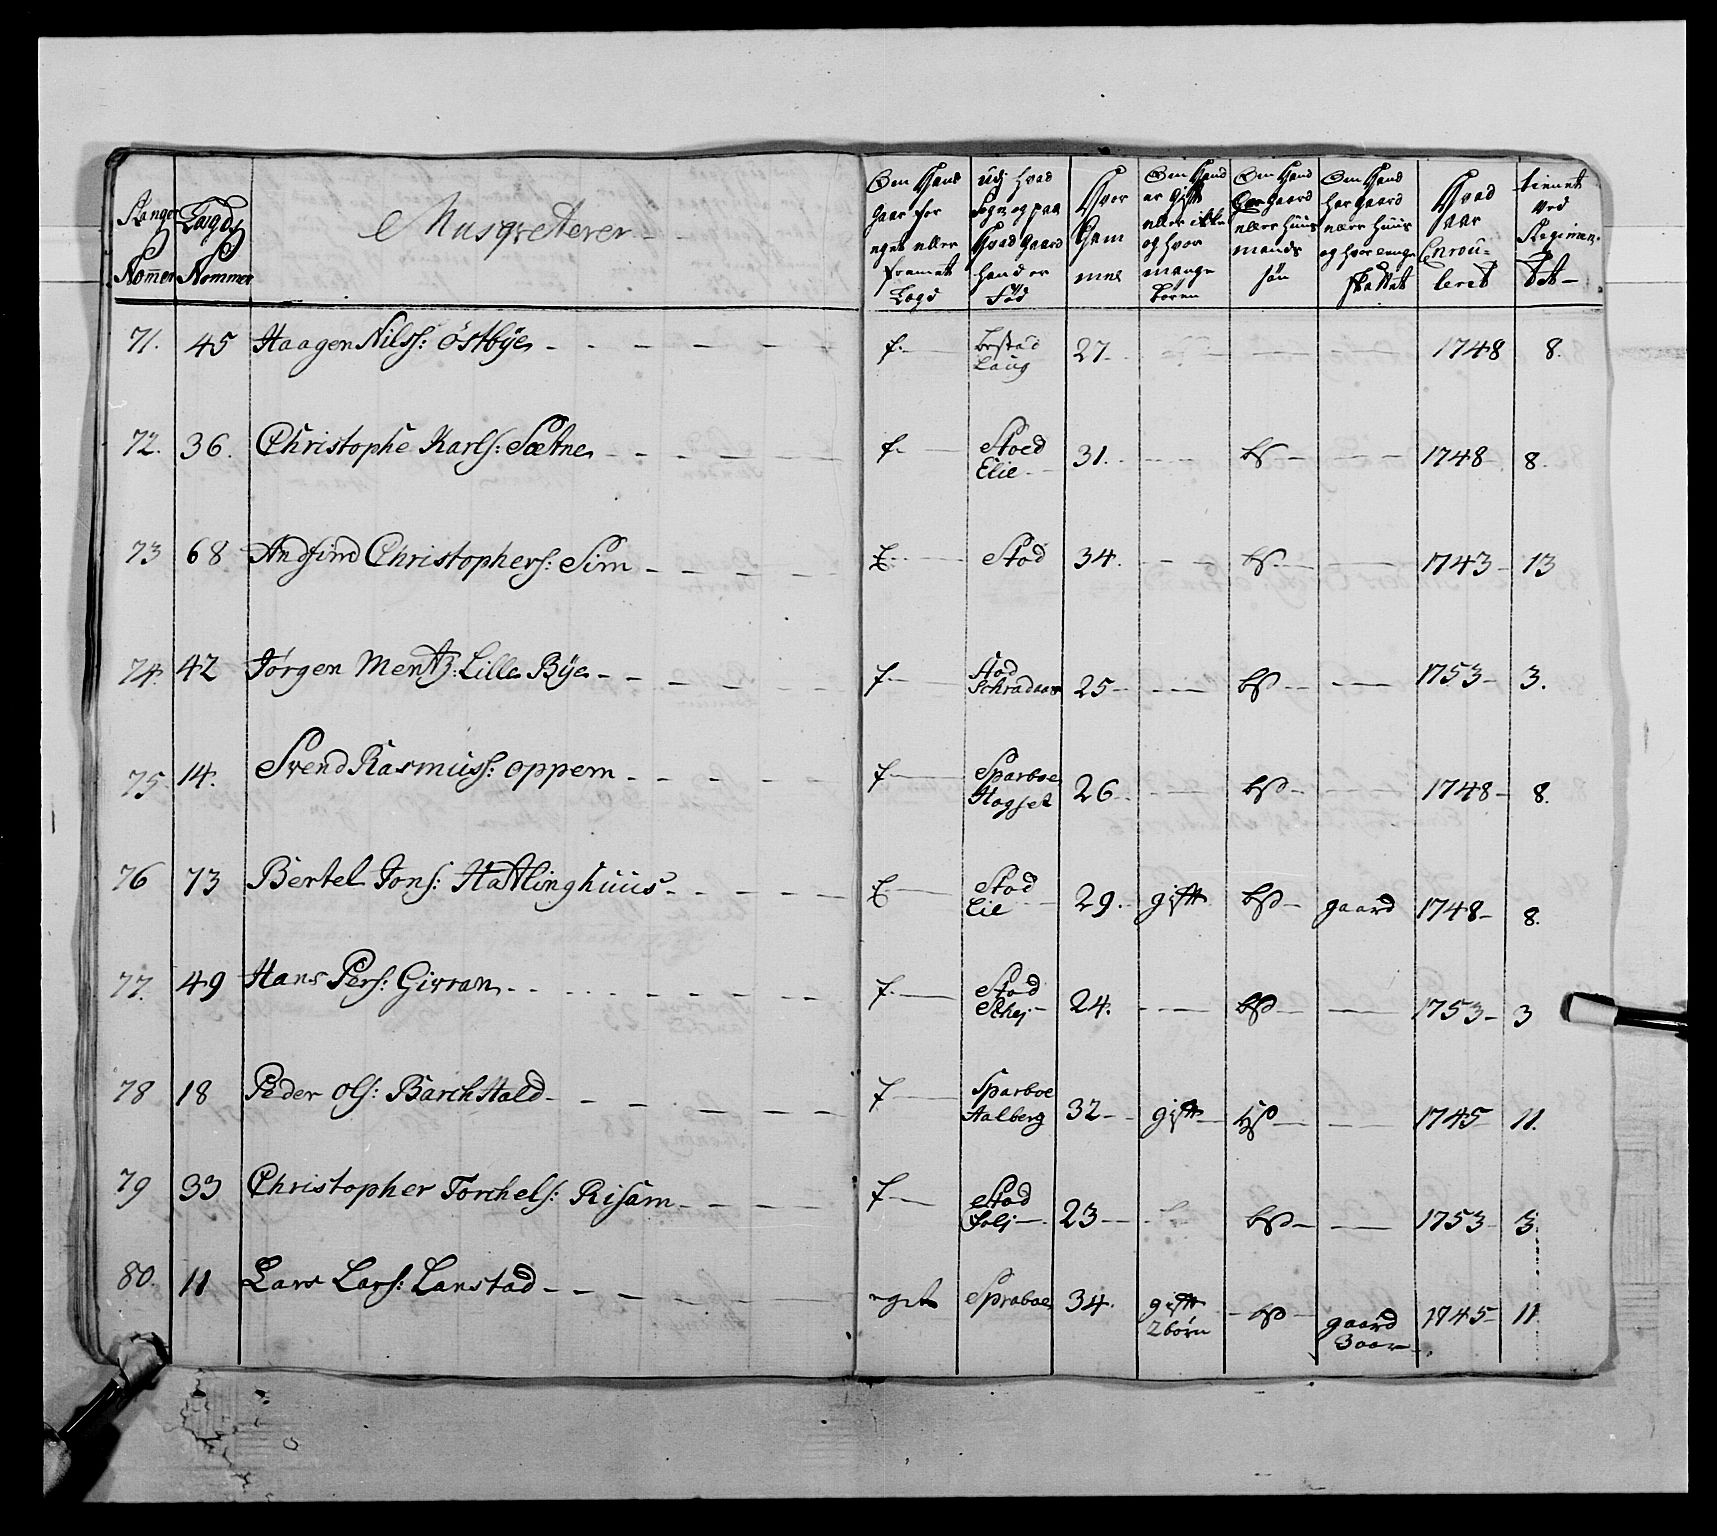 Range Nomer
Laugds Nommer
Musqveterer
Om Hand gaar for eget eller fremet Lægd
udj hvad Sogn og paa hvad gaard hand er Fød
Hvor Gam mel
Om Hand er Gift eller ikke og hvor mange børen
Om Hand er gaard eller Huus mands søn
Om Hand har gaard eller Huus og hvor lenge skattet
Hvad aar Enroulleret
tienet ved Regimen: tet
71. 45 Haagen Nilss: östbÿe f. 27 1748 8.
72. 36. Christophe Karls: Sætne f. Stoed Elie 31. bS 1748 8.
73 68 Andfind Christophers: Sim E. Stod 34. bS 1743 13
74. 42 Jörgen Mentz: Lille Bÿe f. Stod Schradaas 25 bS 1753 3.
75 14. Svend Rasmuss: oppem f. Sparboe Hogset 26 bS 1748 8.
76 73 Bertel Jons: Hattlinghuus E. Stod Eie 29. gift bS gaard 1748 8.
77. 49 Hans Pers: Girran f. Stod Schej 24. bS 1753 3
78 18 Peder Ols: BarchHald f Sparboe Aalberg 32 gift HS 1745 11.
79 33 Christopher Torchels: Risam f Stod 23 bS 1753 3
80. 11 Lars Lars: Lanstad eget Spraboe 34. gift 2 börn bS gaard 3 aar 1745 11